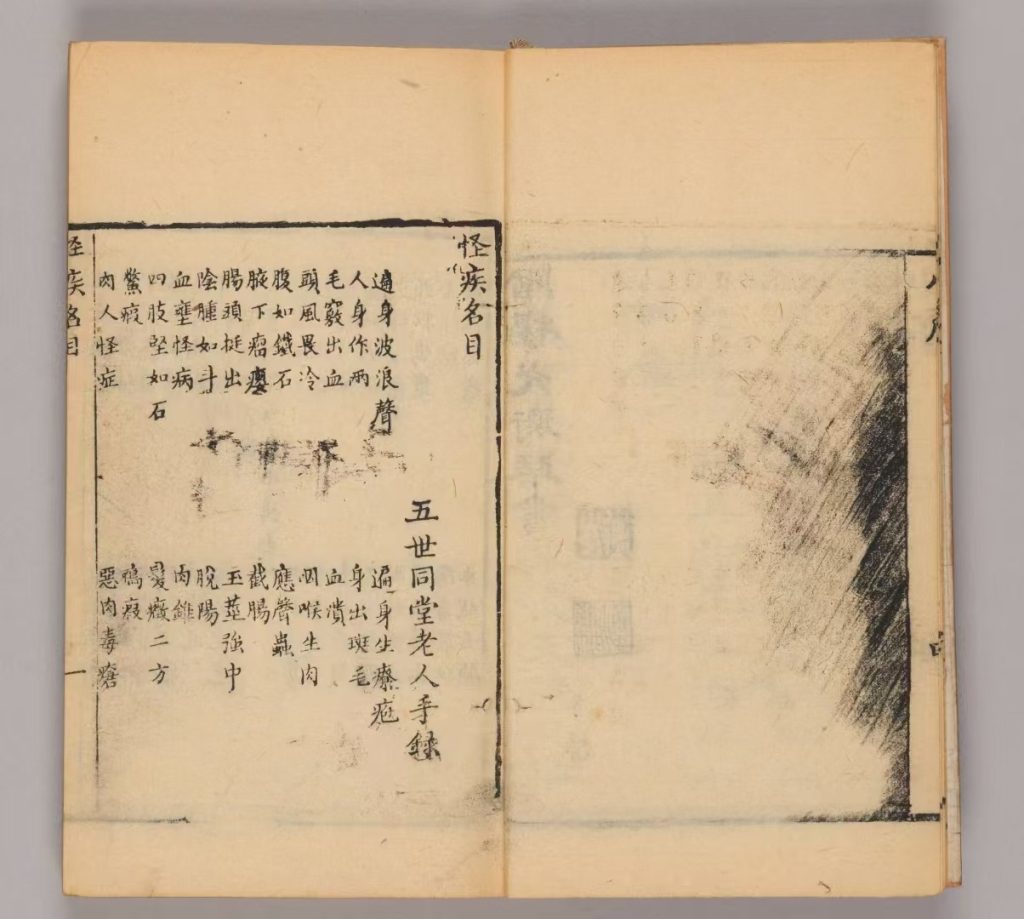 怪疾名目
五世同堂老人手錄
遍身波浪聲 遍身生
人身作兩 身出斑毛
毛竅出血 血潰
頭風畏冷 咽喉生肉
腹如鐵石 應聲蟲
腋下瘤癭 截腸
腸頭挺出 玉莖強中
陰腫如斗 脫陽
血壅怪病 肉錐
四肢堅如石 髮癥二方
鱉瘕 瘕
肉人怪症 惡肉毒瘡
怪疾名目 一